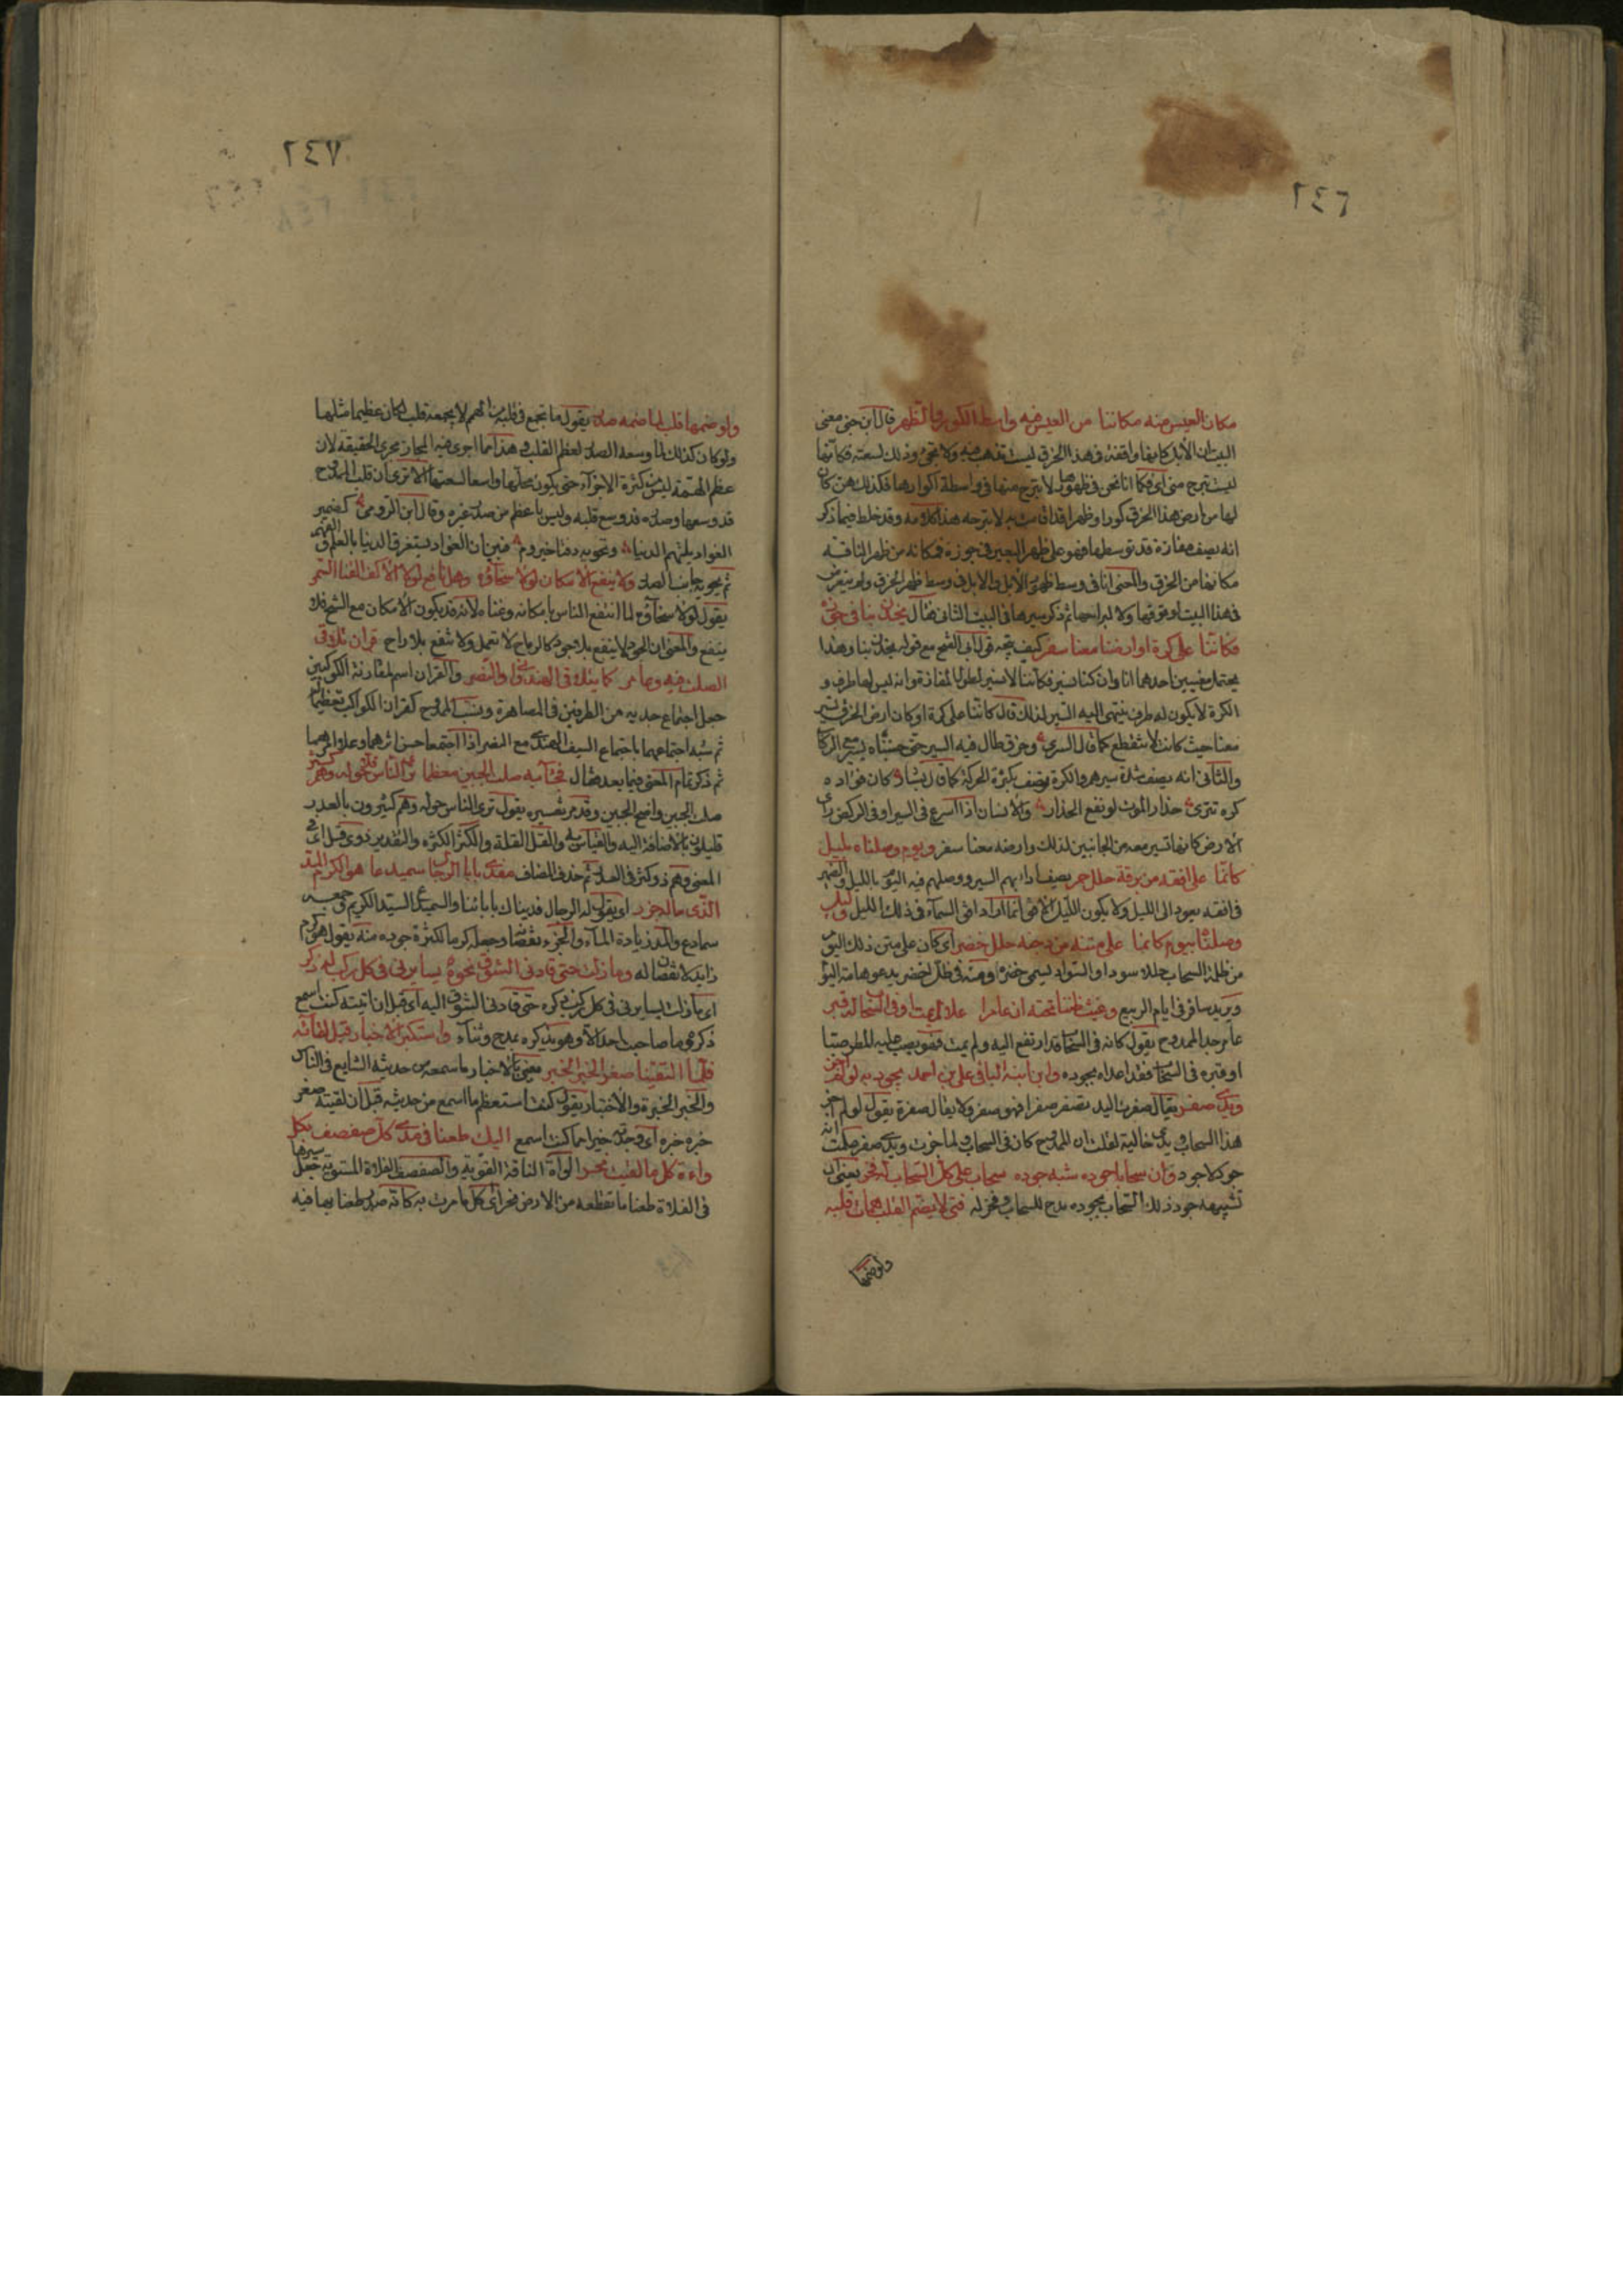 ٢٤٦
مكان العيس منه مكاننا من العيس فيه واسط الكور والظهر قال ابن جني معنى
البيت ان الأبل كانها واقفة في هذا الخرق ليست تذهب فيه ولا تجئ وذلك لسعته فكانها
ليست تبرح منه اي فكما انا نحن في ظهورها لا نبرح منها في واسطة اكوارها فكذلك هن كان
لها من ارض هذا الخرق كورا وظهرا قد اقامت به لا تبرحه هذا كلامه وقد خلط فيما ذكر
انه يصف مفازة قد توسطها فهو على ظهر البعير في جوزه فمكانه من ظهر الناقة
مكانها من الخرق والمعنى انا في وسط ظهور الأبل والابل في وسط ظهر الخرق ولم يتعرض
في هذا البيت لوقوفها ولا لبراحها ثم ذكر سيرها في البيت الثاني فقال يخدن بنا في جوزه
فكاننا على كرة او ارضنا معنا سفر كيف يتجه قول ابي الفتح مع قوله يخدن بنا وهذا
يحتمل معنيين احدهما انا وان كنا نسير فكاننا لا نسير لطول المفازة وانه ليس لها طرف و
الكرة لا يكون له طرف ينتهى اليه السير لذلك قال كاننا على كرة او كان ارض الخرق تسير
معنا حيث كانت لا تنقطع كما قال السري وخرق طال فيه السير حتى حسبناه يسير مع الركاب
والثاني انه يصف شدة سيرهم والكرة توصف بكثرة الحركة كما قال بشار كان فؤاده
كره تنزى حذار الموت لو نفع الحذار والأنسان اذا اسرع في السير او في الركض راى
الارض كانها تسير معه من الجانبين لذلك وارضه معنا سفر ويوم وصلناه بليل
كانما على افقه من برقه حلل حمر يصف ادابهم السير ووصلهم فيه اليوم بالليل والضمير
في افقه يعود الى الليل ولا يكون لليل افق انما اراد افق السماء في ذلك الليل وليل
وصلناه بيوم كانما على متنه من دجنه حلل خضر اي كان على متن ذلك اليوم
من ظلمة السحاب حللا سودا والسواد يسمى خضرة ومنه في ظل اخضر يدعو هامه البوم
ويريد سافر في ايام الربيع وغيث ظننا تحته ان عامرا علا لم يمت او في السحاب له قبر
عامر جد الممدوح يقول كانه في السحاب قد ارتفع اليه ولم يمت فهو يصب عليه المطر صبا
او قبره في السحاب فقد اعداه بجوده وابن ابنه الباقي علي بن احمد يجود به لو لم اجز
ويدي صفر يقال صفرت اليد تصفر صفرا فهو صفر ولا يقال صفرة يقول لو لم اجز
هذا السحاب ويدي خالية لقلت ان الممدوح كان في السحاب ولما جزت ويدي صفر علمت انه
جود لا جود وان سحابا جوده شبه جوده سحاب على كل السحاب له فخر يعني ان
تشبيهه جود ذلك السحاب بجوده مدح للسحاب وفخر له فتى لا يضم القلب همات قلبه
ولو ضمها
٢٤٧
ولو ضمها قلب لما ضمه صدر يقول ما تجمع في قلبه من الهم لا يجمعه قلب لكان عظيما مثلها
ولو كان كذلك لما وسعه الصدر لعظم القلب وهذا انما اجرى فيه المجاز مجرى الحقيقة لان
عظم الهمة ليس من كثرة الاجزاء حتى يكون محلها واسعا لسعتها الا ترى ان قلب الممدوح
قد وسعها وصدره قد وسع قلبه وليس باعظم من صدر غيره وقال ابن الرومي كضمير
الفؤاد يلتهم الدنيا وتحويه دفتا حيزوم فبين ان الفؤاد يستغرق الدنيا بالعلم والفهم
ثم يحويه جانبا الصدر ولا ينفع الامكان لولا سخاؤه وهل نافع لولا الاكف القنا السمر
يقول لولا سخاؤه لما انتفع الناس بامكانه وغناه لانه قد يكون الامكان مع الشح فلا
ينفع والمعنى ان الجود لا ينفع بلا جود كالرماح لا تعمل ولا تنفع بلا راح قران تلاقى
الصلت فيه وعامر كما يتلاقى الهندواني والنصر والقران اسم لمقارنة الكوكبين
جعل اجتماع جديه من الطرفين في المصاهرة ونسب الممدوح كقران الكواكب تعظيما له
ثم شبه اجتماعهما باجتماع السيف الهندي مع النصر اذا اجتمعا حسن اثرهما وعلا امرهما
ثم ذكر تمام المعنى فيما بعد فقال فجاآ به صلت الجبين معظما ترى الناس قلا حوله وهم كثر
صلت الجبين واضح الجبين وقد مر تفسيره يقول ترى الناس حوله وهم كثيرون بالعدد
قليلون بالاضافة اليه والقياس به والقل القلة والكثر الكثرة والتقدير ذوي قل اي في
المعنى وهم ذو كثر في العدد ثم حذف المضاف مفدى بابآء الرجال سميدعا هو الكرم المد
الذي ماله جزر اي يقول له الرجال فديناك بابائنا والسميدع السيد الكريم وجمعه
سمادع والمد زيادة الماء والجزر نقصانه وجعله كرما لكثرة جوده منه يقول هو كرم
زايد لا نقصان له وما زلت حتى قادني الشوق نحوه يسايرني في كل ركب له ذكر
اي ما زلت يسايرني في كل ركب ذكره حتى قادني الشوق اليه اي قبل ان اتيته كنت اسمع
ذكره وما صاحبت احدا الا وهو يذكره بمدح وثناء واستكبر الاخبار قبل لقائه
فلما التقينا صغر الخبر الخبر معنى الاخبار ما سمعه من حديثه الشايع في الناس
والخبر الخبرة والاختبار يقول كنت استعظم ما اسمع من حديثه قبل ان لقيته صغر
خبره خبره اي وجدته خيرا مما كنت اسمع اليك طعنا في مدى كل صفصف بكل
واءة كل ما لقيت نحر الوآة الناقة القوية والصفصف الفلاة المستوية جعل سيرها
في الفلاة طعنا ما تقطعه من الارض نحر اي كل ما مرت به كانه صدر طعنا بها فيه